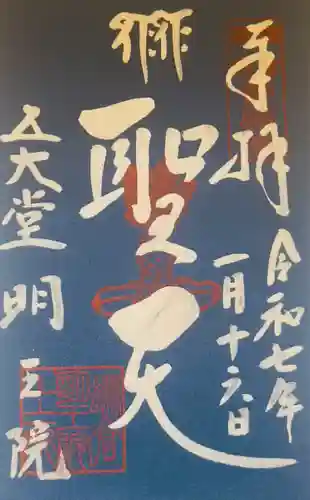 奉拝
令和七年
一月十六日
聖天
五大堂明王院